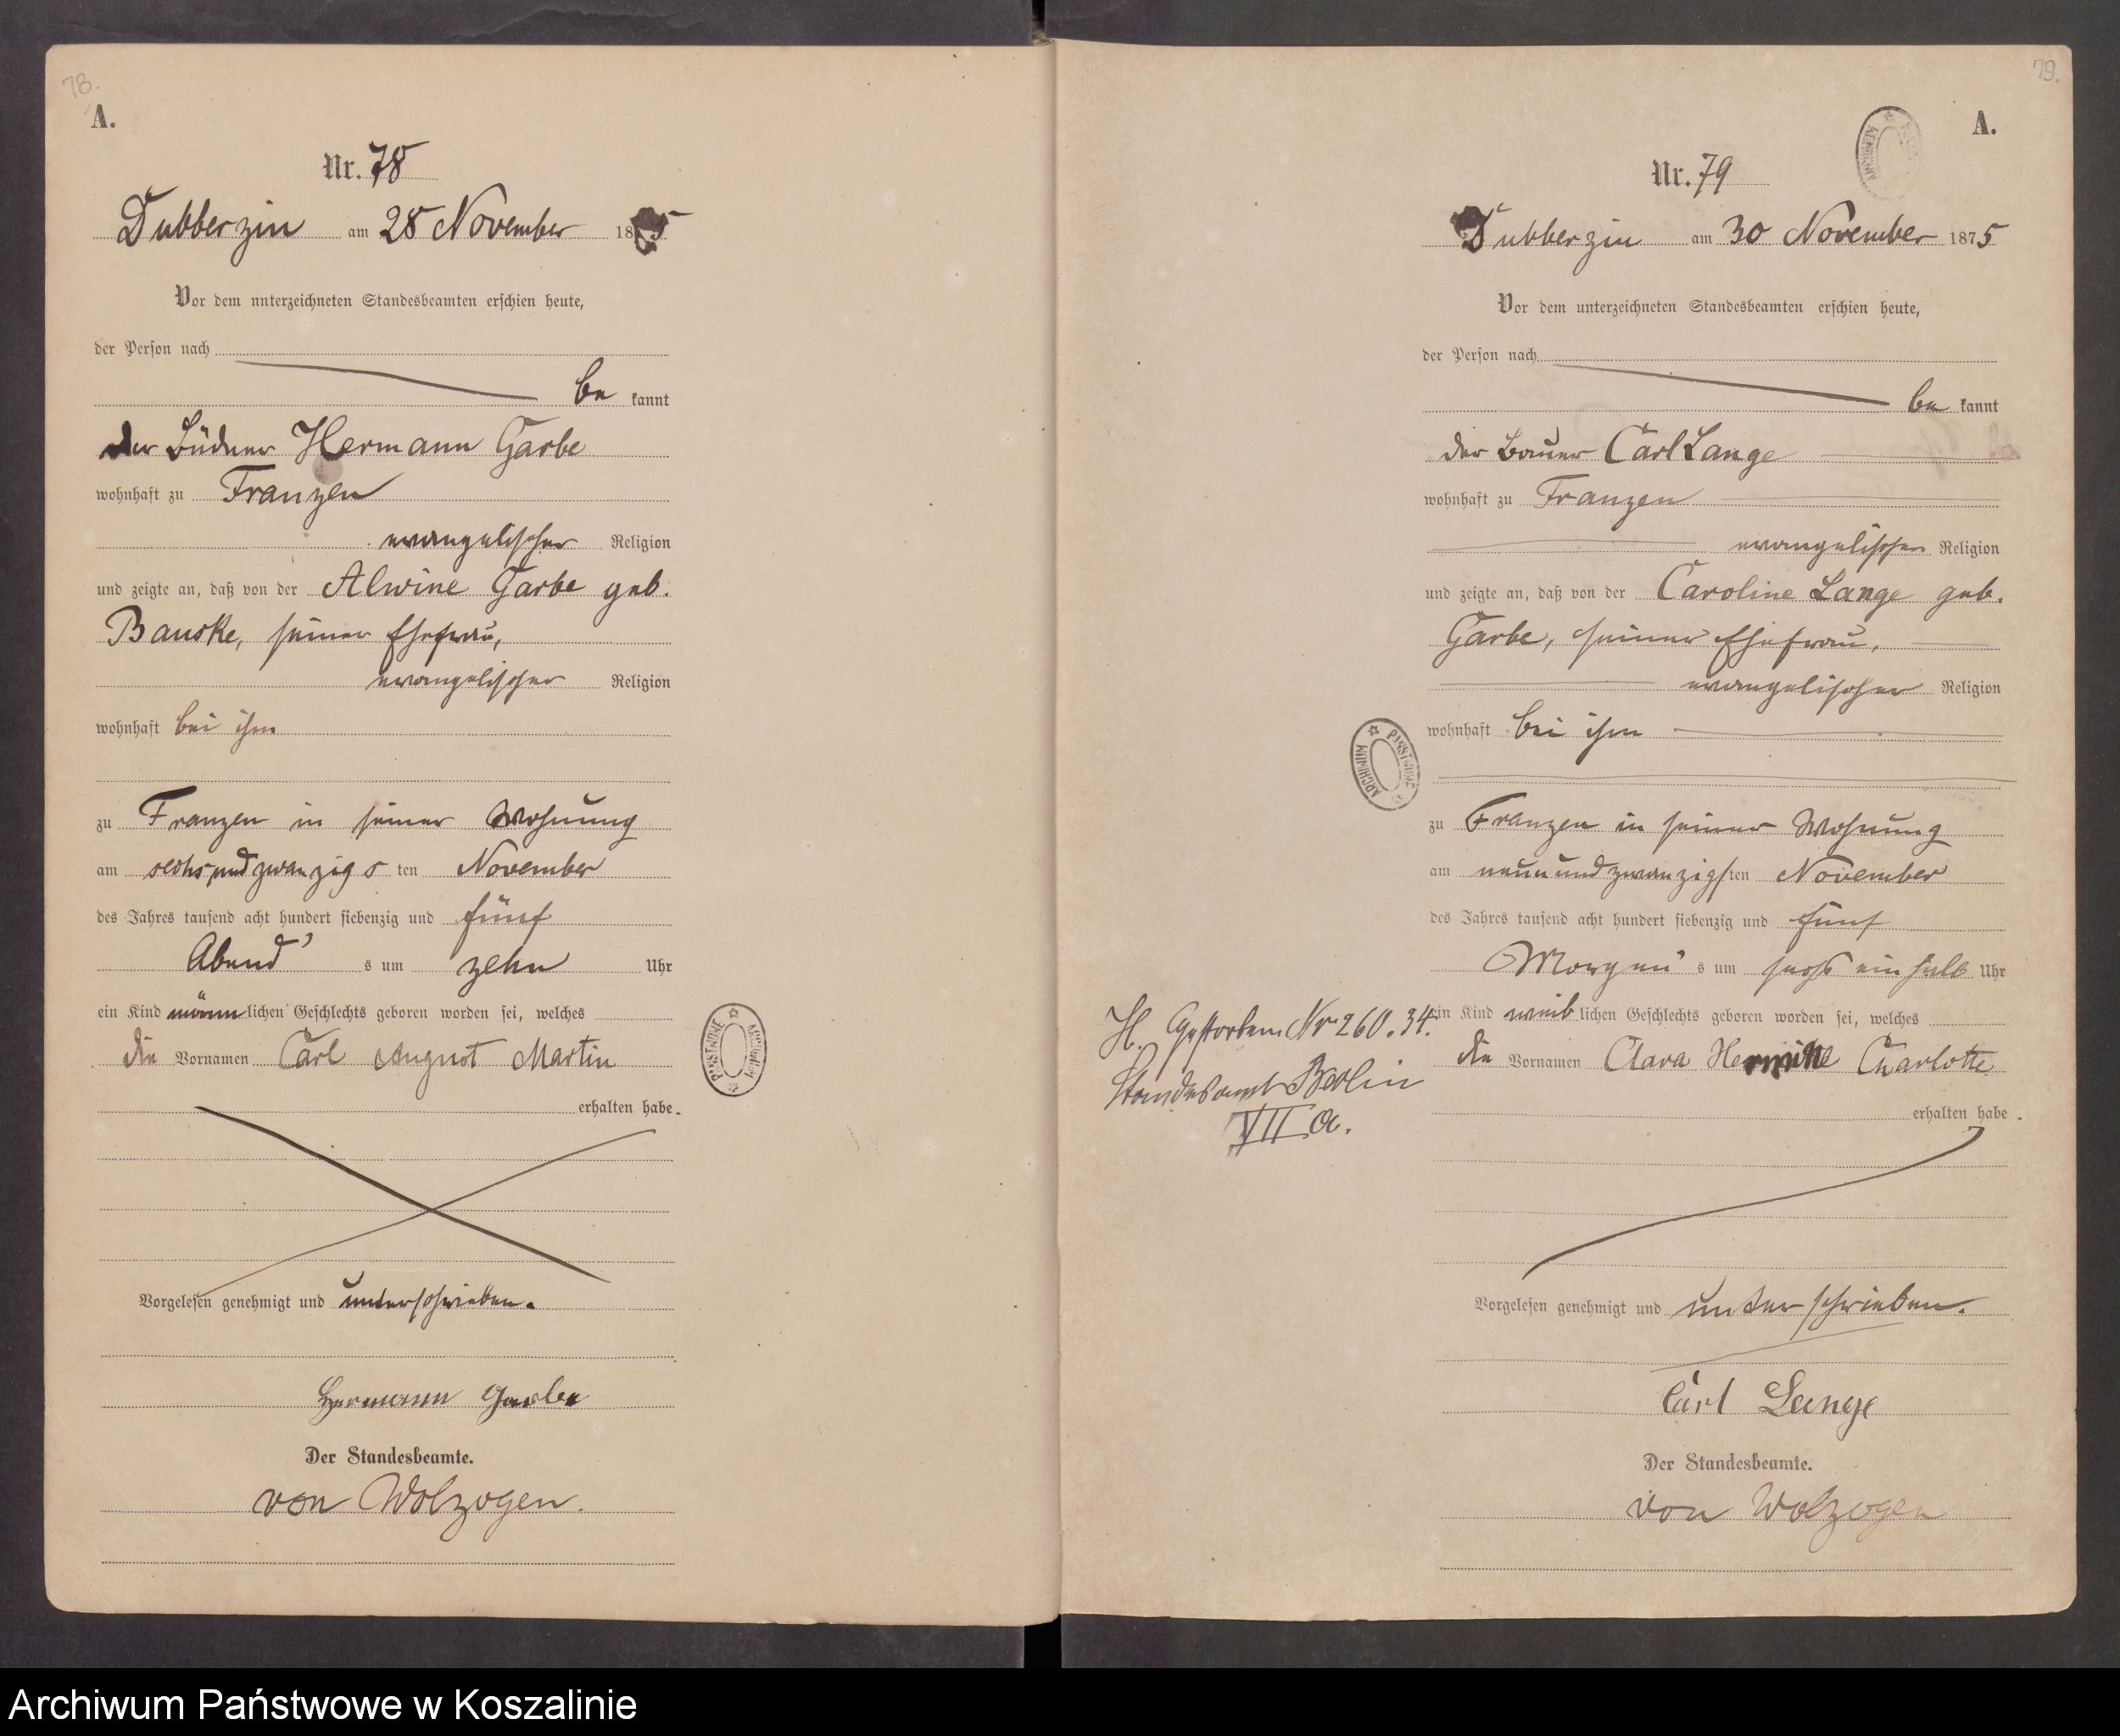 78.
A.
Nr. 78
Dubberzin am 28 November 18 5
Vor dem unterzeichneten Standesbeamten erschien heute,
der Person nach
be kannt
der Büdner Hermann Garbe
wohnhaft zu Franzen
evangelischer Religion
und zeigte an, daß von der Alwine Garbe geb.
Bauske, seiner Ehefrau,
evangelischer Religion
wohnhaft bei ihm
zu Franzen in seiner Wohnung
am sechsundzwanzigs ten November
des Jahres tausend acht hundert siebenzig und fünf
Abend s um zehn Uhr
ein Kind männ lichen Geschlechts geboren worden sei, welches
die Vornamen Carl August Martin
erhalten habe.
Vorgelesen genehmigt und unterschrieben.
Hermann Garbe
Der Standesbeamte.
von Wolzogen.
79.
A.
Nr. 79
Dubberzin am 30 November 1875
Vor dem unterzeichneten Standesbeamten erschien heute,
der Person nach
be kannt
der Bauer Carl Lange
wohnhaft zu Franzen
evangelischer Religion
und zeigte an, daß von der Caroline Lange geb.
Garbe, seiner Ehefrau,
evangelischer Religion
wohnhaft bei ihm
zu Franzen in seiner Wohnung
am neunundzwanzigsten November
des Jahres tausend acht hundert siebenzig und fünf
Morgen s um sechs ein halb Uhr
ein Kind weib lichen Geschlechts geboren worden sei, welches
die Vornamen Clara Charlotte
erhalten habe.
H. Gestorben Nr 260.34.
Standesamt Berlin
VII a.
Vorgelesen genehmigt und unterschrieben.
Carl Lange
Der Standesbeamte.
von Wolzogen
ARCHIWUM PAŃSTWOWE
ARCHIWUM PAŃSTWOWE
Archiwum Państwowe w Koszalinie